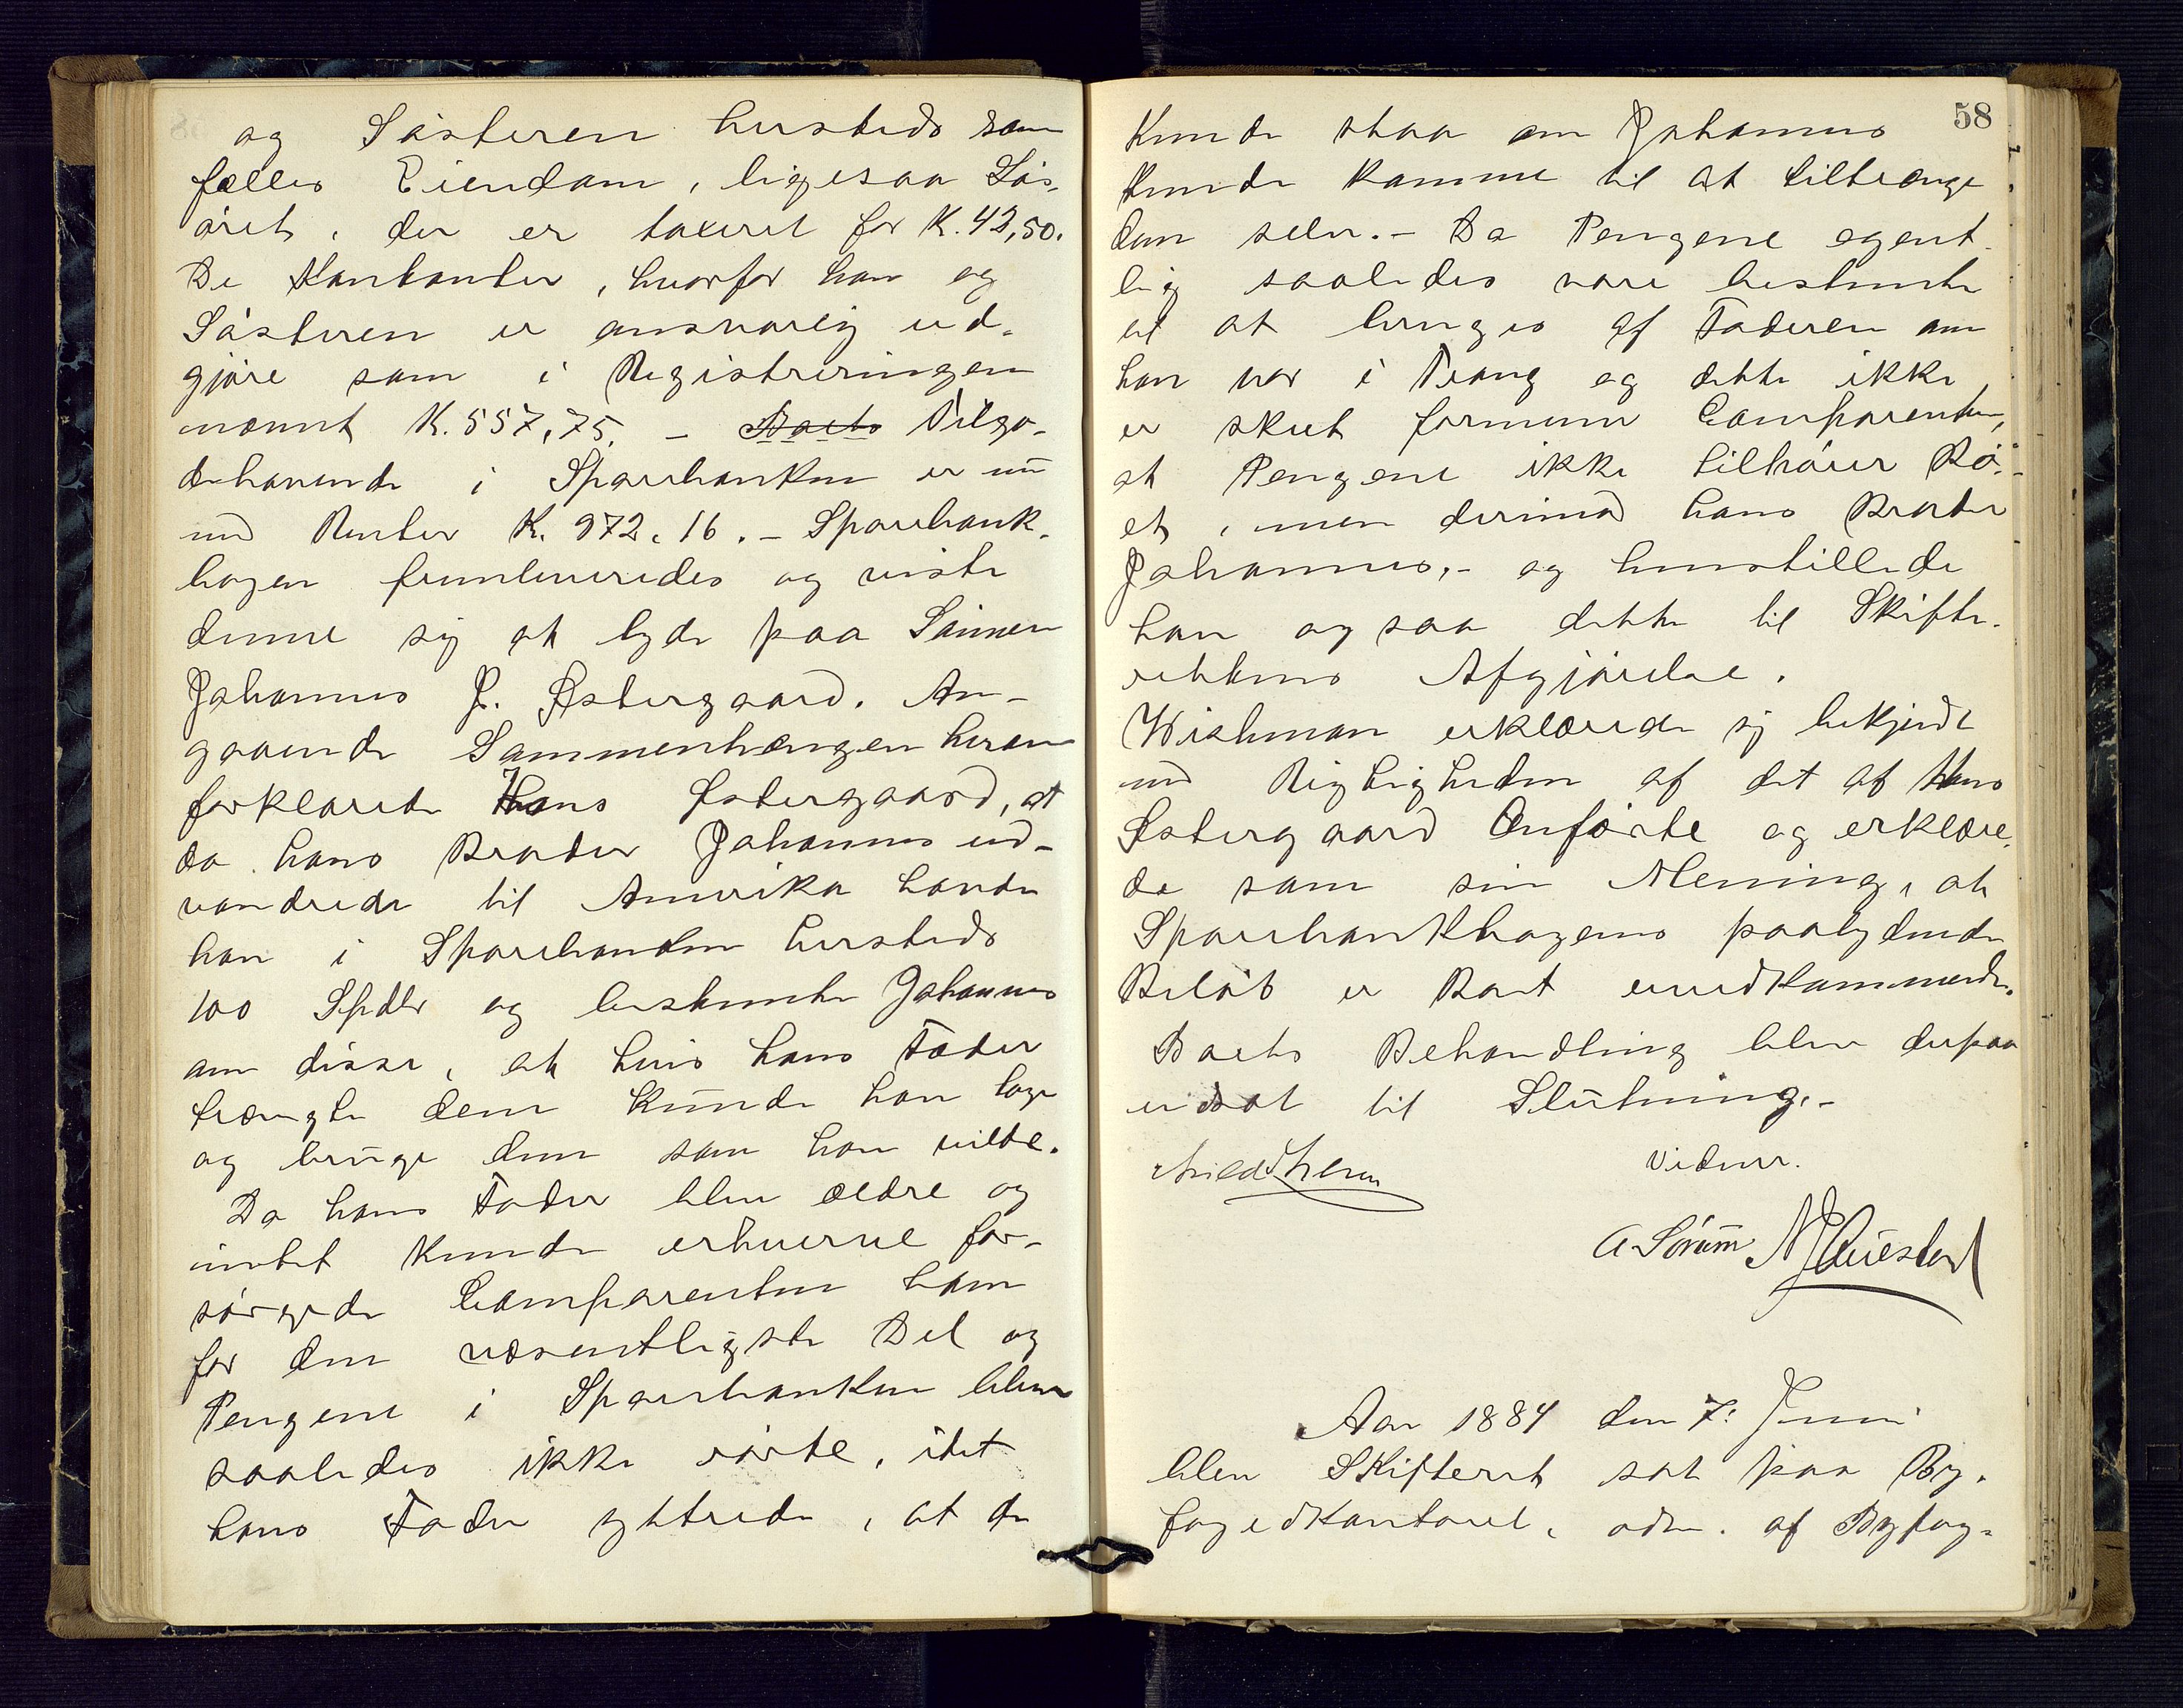 og Søsteren hersteds som
fælles Eiendom, ligesaa Løs-
øret, der er taxeret for K. 42,50.
De Kontanter, hvorfor han og
Søsteren er ansvarlig ud-
gjøre som i Registreringen
nævnt K. 557,75. - Boets Tilgo-
dehavende i Sparebanken er nu
med Renter K. 972,16. - Sparebank-
bogen fremleveredes og viste
denne sig at lyde paa Sønnen
Johannes J. Østergaard. An-
gaaende Sammenhængen herom
forklarede Hans Østergaard, at
da hans Broder Johannes ud-
vandrede til Amerika havde
han i Sparebanken hersteds
100 Spdlr og bestemte Johannes
om disse, at hvis hans Fader
trængte dem kunde han tage
og bruge dem som han vilde.
Da hans Fader blev ældre og
intet kunde erhverve for-
sørgede Comparenten ham
for den væsentligste Del og
Pengene i Sparebanken blev
saaledes ikke rørte, idet
hans Fader yttrede, at de
58
kunde staa om Johannes
kunde komme til at tiltrænge
dem selv. - Da Pengene egent-
lig saaledes vare bestemte
til at bruges af Faderen om
han var i Trang og dette ikke
er skeet formener Comparenten,
at Pengene ikke tilhører Bo-
et, men derimod hans Broder
Johannes, - og henstillede
han ogsaa dette til Skifte-
rettens Afgjørelse.
Wishman erklærede sig bekjendt
med Rigtigheden af det af Hans
Østergaard Anførte og erklære-
de som sin Mening, at
Sparebankbogens paalydende
Beløb er Boet uvedkommende.
Boets Behandling blev derpaa
udsat til Slutning. -
Vidner.
A Sörum
Aar 1884 den 7: Juni
blev Skifteret sat paa By-
fogedkontoret, adm. af Byfog-